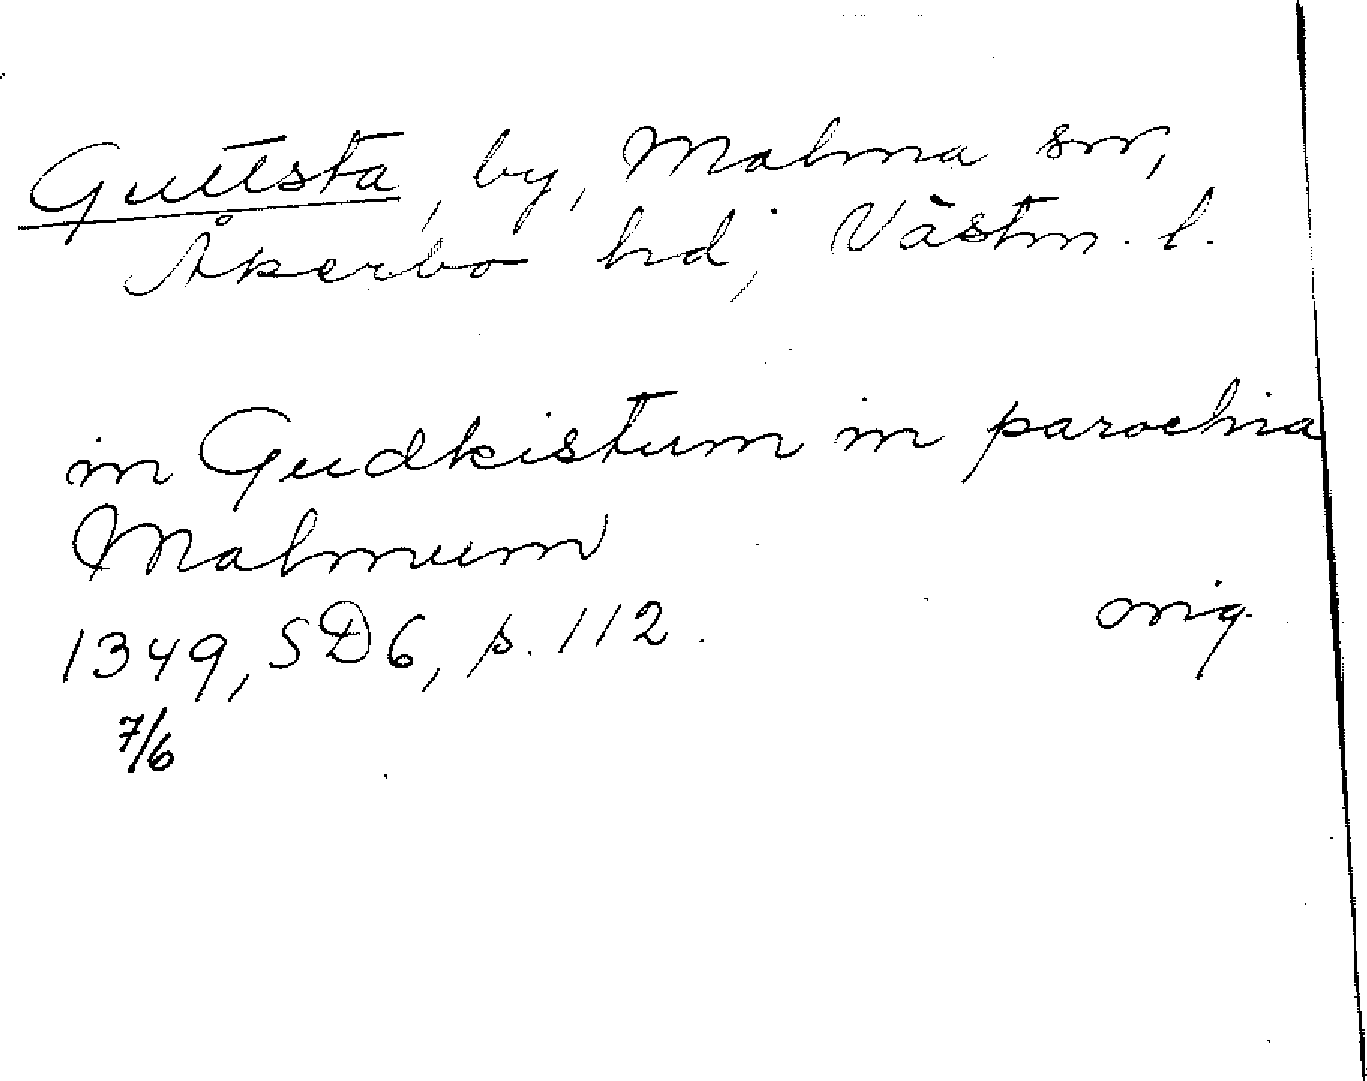 Guttsta, by, Malma sn,
Åkerbo hd, Västm. l.
in Gudkistum in parochia
Malmum
1349, SD6, p. 112. orig.
7/6